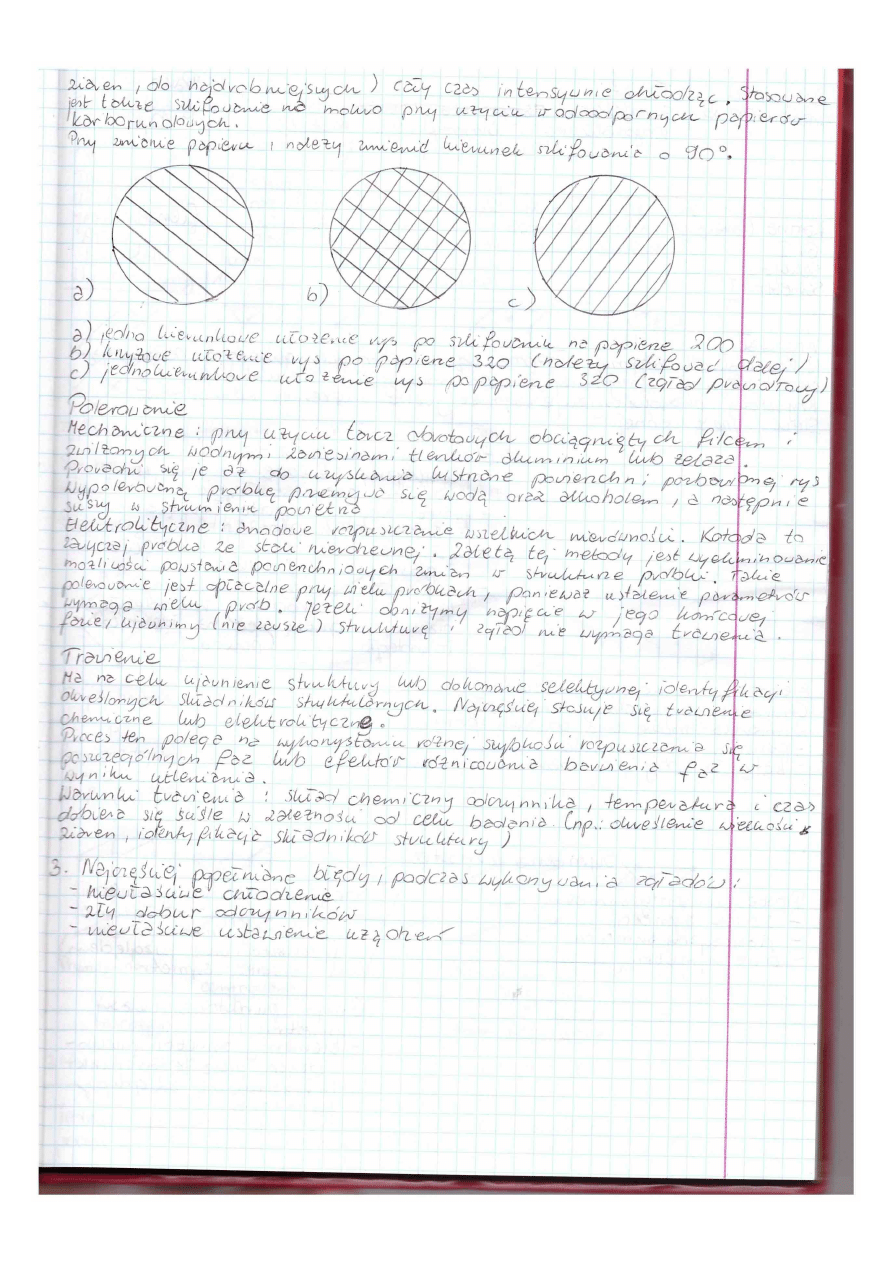 ziaren, do najdrobniejszych) cały czas intensywnie chłodząc. Stosowane
jest także szlifowanie na mokro przy użyciu wodoodpornych papierów
karborundowych.
Przy zmianie papieru, należy zmienić kierunek szlifowania o 90°.
a) b) c)
a) jedno kierunkowe ułożenie rys po szlifowaniu na papierze 200
b) krzyżowe ułożenie rys po papierze 320 (należy szlifować dalej)
c) jednokierunkowe ułożenie rys po papierze 320 (zgład prawidłowy)
Polerowanie
Mechaniczne: przy użyciu tarcz obrotowych obciągniętych filcem i
zwilżonych wodnymi zawiesinami tlenków aluminium lub żelaza.
Prowadzi się je aż do uzyskania lustrzane powierzchni pozbawionej rys
Wypolerowaną próbkę przemywa się wodą oraz alkoholem, a następnie
suszy w strumieniu powietrza
Elektrolityczne: anodowe rozpuszczanie wszelkich nierówności. Katoda to
zazwyczaj próbka ze stali nierdzewnej. Zaletą tej metody jest wyeliminowanie
możliwości powstania powierzchniowych zmian w strukturze próbki. Takie
polerowanie jest opłacalne przy wielu próbkach, ponieważ ustalenie parametrów
wymaga wielu prób. Jeżeli obniżymy napięcie w jego końcowej
fazie, ujawnimy (nie zawsze) strukturę i zgład nie wymaga trawienia.
Trawienie
Ma na celu ujawnienie struktury lub dokonanie selektywnej identyfikacji
określonych składników strukturalnych. Najczęściej stosuje się trawienie
chemiczne lub elektrolityczne.
Proces ten polega na wykorzystaniu różnej szybkości rozpuszczania się
poszczególnych faz lub efektów różnicowania barwienia faz w
wyniku utleniania.
Warunki trawienia: skład chemiczny odczynnika, temperatura i czas
dobiera się ściśle w zależności od celu badania (np.: określenie wielkości
ziaren, identyfikacja składników struktury)
3. Najczęściej popełniane błędy, podczas wykonywania zgładów:
- niewłaściwe chłodzenie
- zły dobór odczynników
- niewłaściwe ustawienie urządzeń